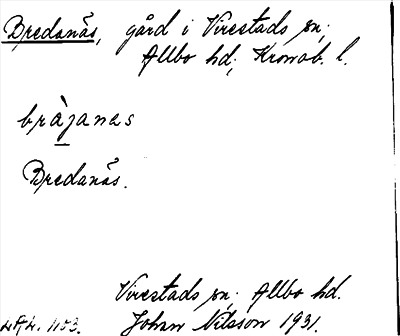 Bredanäs, gård i Virestads sn;
Allbo hd; Kronob. l.
bràjanas
Bredanäs.
Virestads sn; Allbo hd.
Johan Nilsson 1931.